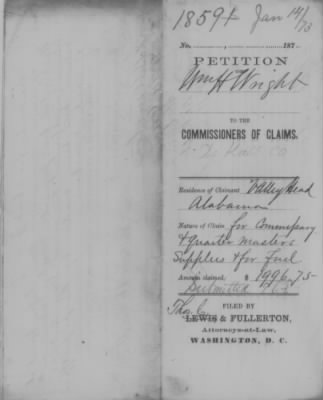 18594 Jan 14/73
No. ............, ..................187
PETITION
Wm H Wright
TO THE
COMMISSIONERS OF CLAIMS.
Residence of Claimant Valley Head
Alabama
Nature of Claim for Commissary
& Quarter Masters
Supplies & for fuel
Amount claimed, $ 1996,75
Submitted
FILED BY
Thos. C.
LEWIS & FULLERTON,
Attorneys-at-Law,
WASHINGTON, D. C.